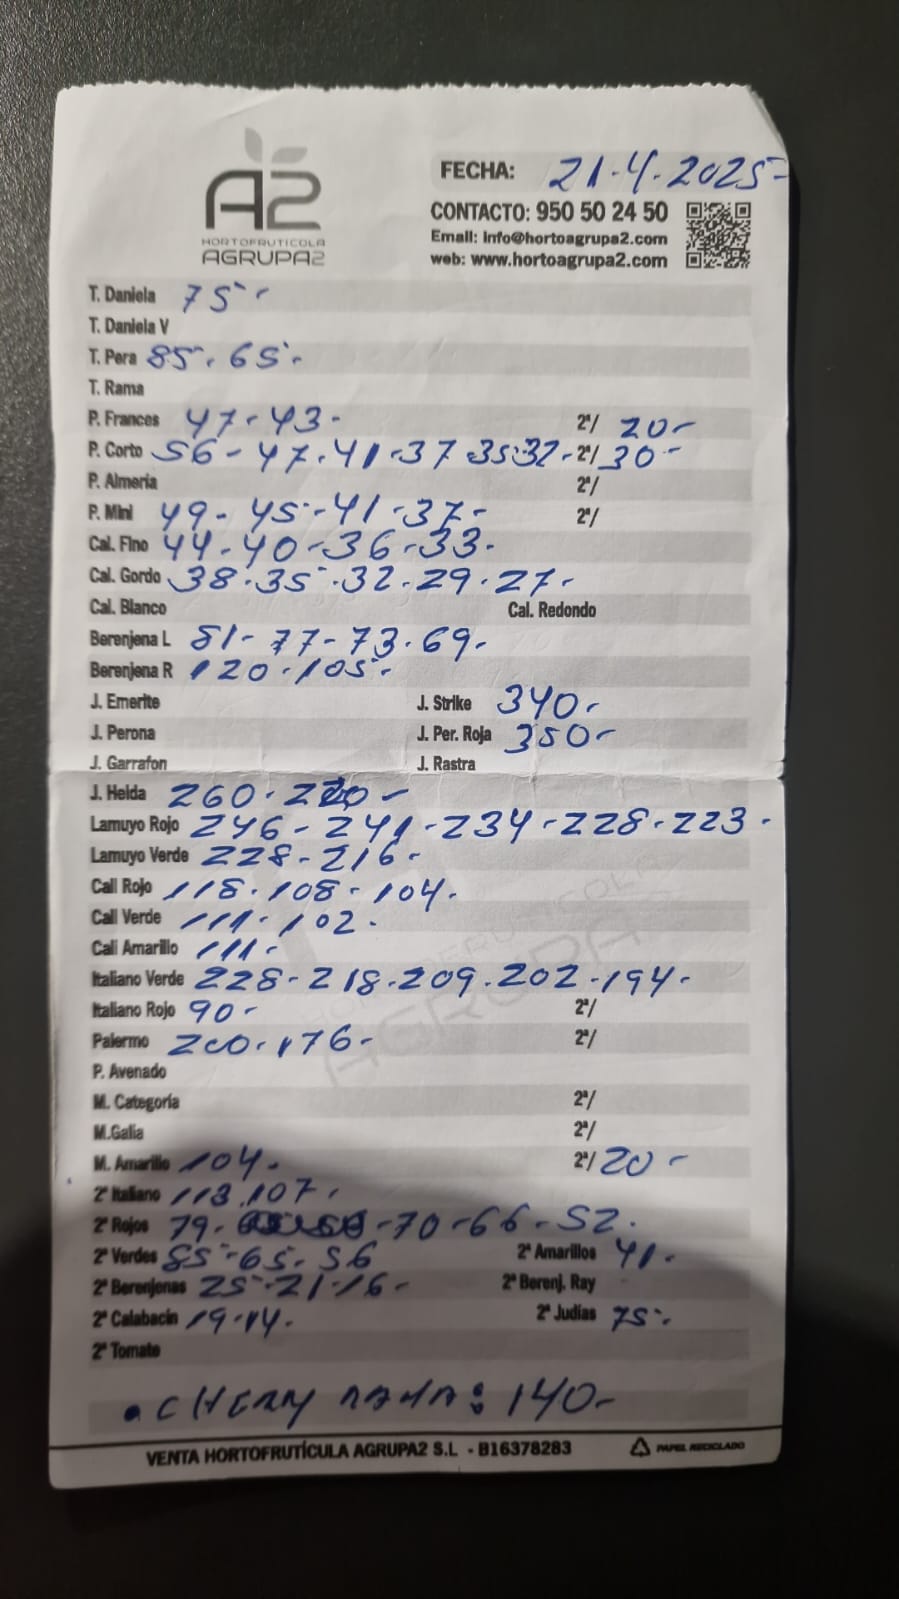 A2
HORTOFRUTICOLA
AGRUPA2
FECHA: 21-4-2025-
CONTACTO: 950 50 24 50
Email: info@hortoagrupa2.com
web: www.hortoagrupa2.com
T. Daniela 75-
T. Daniela V
T. Pera 85-65-
T. Rama
P. Frances 47-43- 2ª/ 20-
P. Corto 56-47-41-37-35-32- 2ª/ 30-
P. Almería 2ª/
P. Mini 49-45-41-37- 2ª/
Cal. Fino 44-40-36-33-
Cal. Gordo 38-35-32-29-27-
Cal. Blanco Cal. Redondo
Berenjena L 81-77-73-69-
Berenjena R 120-105-
J. Emerite J. Strike 340-
J. Perona J. Per. Roja 350-
J. Garrafon J. Rastra
J. Helda 260-
Lamuyo Rojo 246-241-234-228-223-
Lamuyo Verde 228-216-
Cali Rojo 118-108-104-
Cali Verde 111-102-
Cali Amarillo 111-
Italiano Verde 228-218-209-202-194-
Italiano Rojo 90- 2ª/
Palermo 200-176- 2ª/
P. Avenado
M. Categoría 2ª/
M.Galia 2ª/
M. Amarillo 104- 2ª/ 20-
2ª Italiano 113-107-
2ª Rojos 79-70-66-52-
2ª Verdes 85-65-56 2ª Amarillos 41-
2ª Berenjenas 25-21-16- 2ª Berenj. Ray
2ª Calabacin 19-14- 2ª Judías 75-
2ª Tomate
• CHERRY RAMA: 140-
VENTA HORTOFRUTÍCULA AGRUPA2 S.L - B16378283 PAPEL RECICLADO